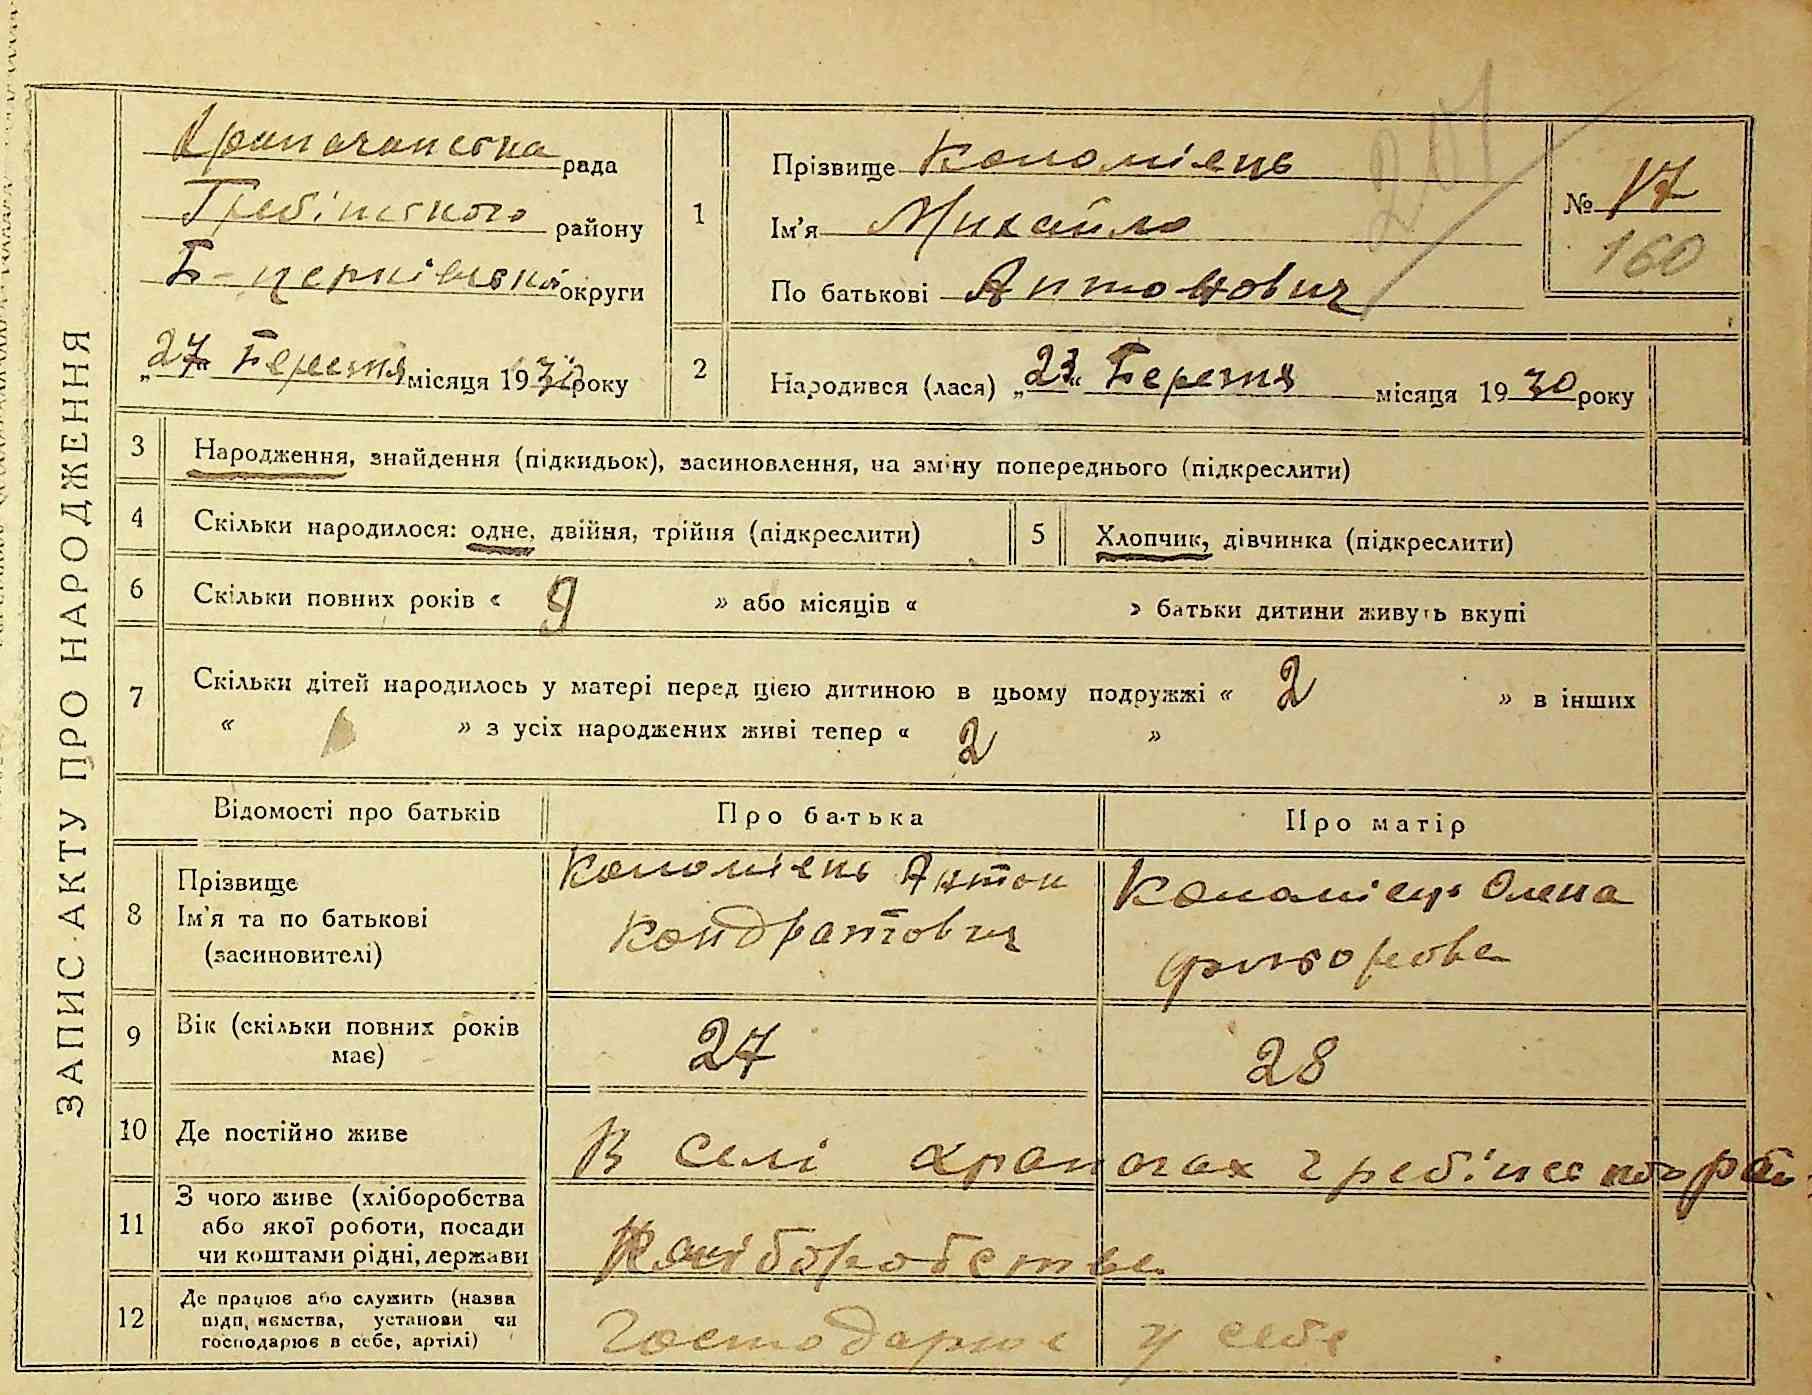 ЗАПИС АКТУ ПРО НАРОДЖЕННЯ
Храпачанська рада
Гребінського району
Б-церківської округи
„27“ Березня місяця 1930 року
1
Прізвище Коломієць
Ім'я Михайло
По батькові Антонович
№ 17
160
207
2
Народився (лася) „23“ Березня місяця 1930 року
3 Народження, знайдення (підкидьок), засиновлення, на зміну попереднього (підкреслити)
4 Скільки народилося: одне, двійня, трійня (підкреслити)
5 Хлопчик, дівчинка (підкреслити)
6 Скільки повних років « 9 » або місяців « » батьки дитини живуть вкупі
7 Скільки дітей народилось у матері перед цією дитиною в цьому подружжі « 2 » в інших
« » з усіх народжених живі тепер « 2 »
Відомості про батьків Про батька Про матір
8 Прізвище
Ім'я та по батькові
(засиновителі)
Коломієць Антон
Кондратович
Коломієць Олена
9 Вік (скільки повних років
має)
27
28
10 Де постійно живе
В селі Храпачах Гребінського
11 З чого живе (хліборобства
або якої роботи, посади
чи коштами рідні, держави
Хліборобства
12 Де працює або служить (назва
підприємства, установи чи
господарює в себе, артілі)
Господарює у себе